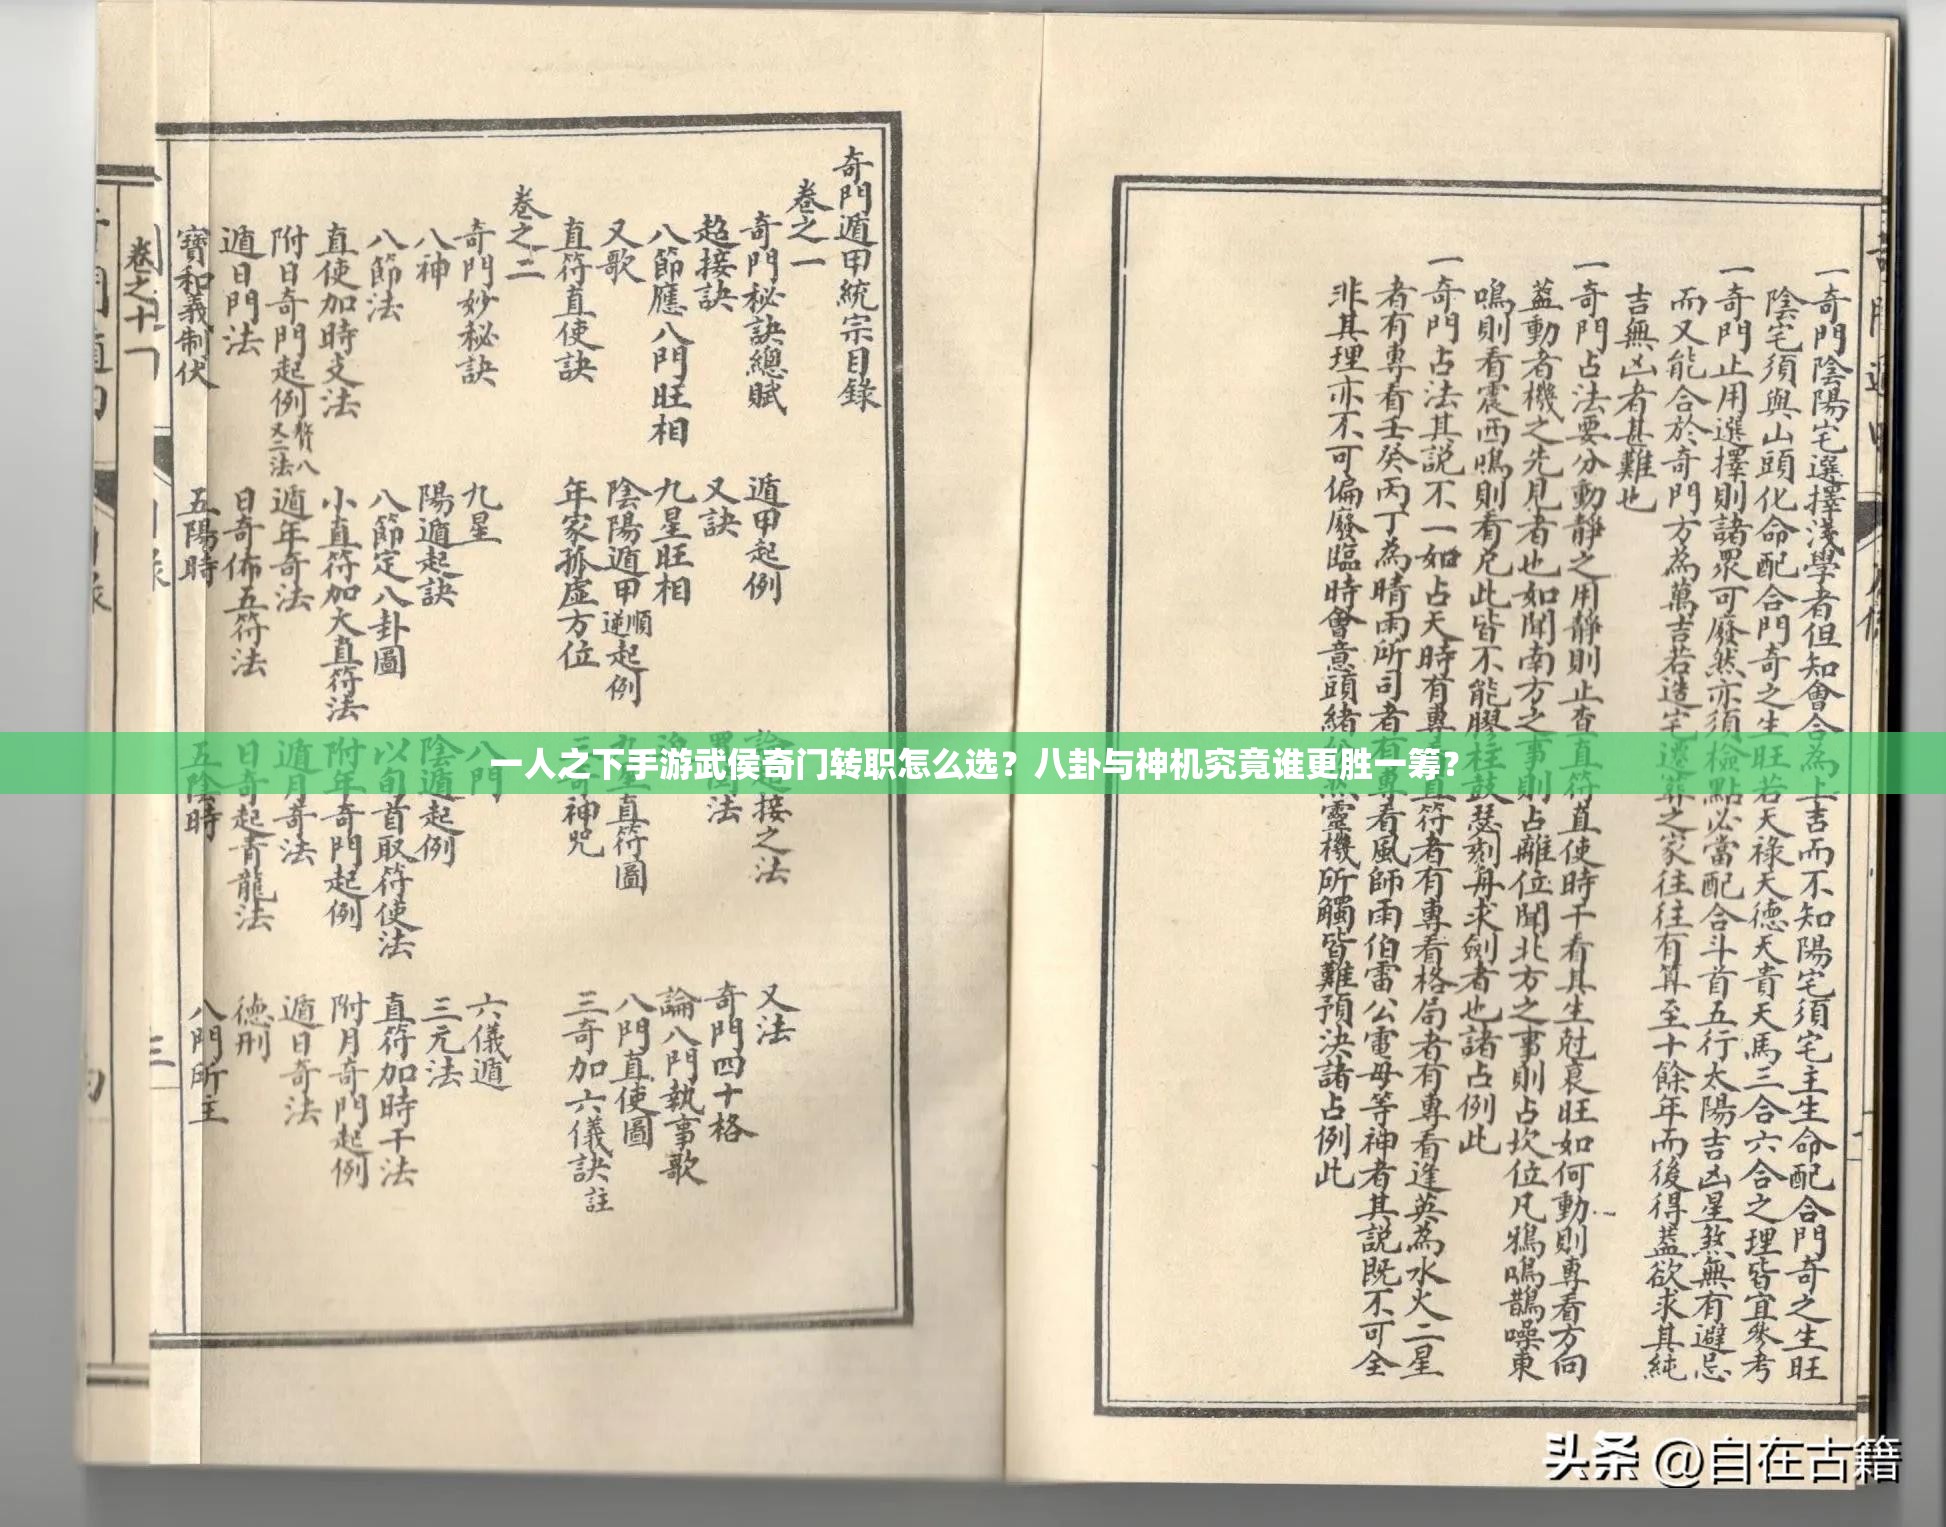 一奇門陰陽宅選擇淺學者但知會合為上吉而不知陽宅須宅主生命配合門奇之生旺
陰宅須與山頭化命配合門奇之生旺若天祿天德天貴天馬三合六合之理皆宜參考
一奇門止用選擇則諸眾可廢然亦須檢點必當配合斗首五行太陽吉凶星煞無有避忌
而又能合於奇門方為萬吉若造宅遷葬之家往往有算至十餘年而後得蓋欲求其純
吉無凶者甚難也
一奇門占法要分動靜之用靜則止查直符直使時干看其生尅衰旺如何動則專看方向
蓋動者機之先見者也如聞南方之事則占離位聞北方之事則占坎位凡鴉鳴鵲噪東
鳴則看震西鳴則看兌此皆不能膠柱鼓瑟刻舟求劍者也諸占例此
一奇門占法其說不一如占天時有專直符者有專看格局者有專看逢英為水火二星
者有專看壬癸丙丁為晴雨所司者有專看風師雨伯雷公電母等神者其說既不可全
非其理亦不可偏廢臨時會意頭緒然靈機所觸皆難預決諸占例此
奇門遁甲統宗目錄
卷之一
奇門秘訣總賦 遁甲起例 超接之法 又法
超接訣 又訣 法 奇門四十格
八節應八門旺相 九星旺相 論八門執事歌
又歌 陰陽遁甲順逆起例 九星直符圖 八門直使圖
直符直使訣 年家孤虛方位 三奇神咒 三奇加六儀訣註
卷之二
奇門妙秘訣 九星 八門 六儀遁
八神 陽遁起訣 陰遁起例 三元法
八節法 八節定八卦圖 以旬首取符使法 直符加時干法
直使加時支法 小直符加大直符法 附年奇門起例 附月奇門起例
附日奇門起例 又二法 遁年奇法 遁月奇法 遁日奇法
遁日門法 日奇佈五符法 日奇起青龍法 德刑
寶和義制伏 五陽時 五陰時 八門所主
卷之十一
一人之下手游武侯奇门转职怎么选？八卦与神机究竟谁更胜一筹？
头条 @自在古籍